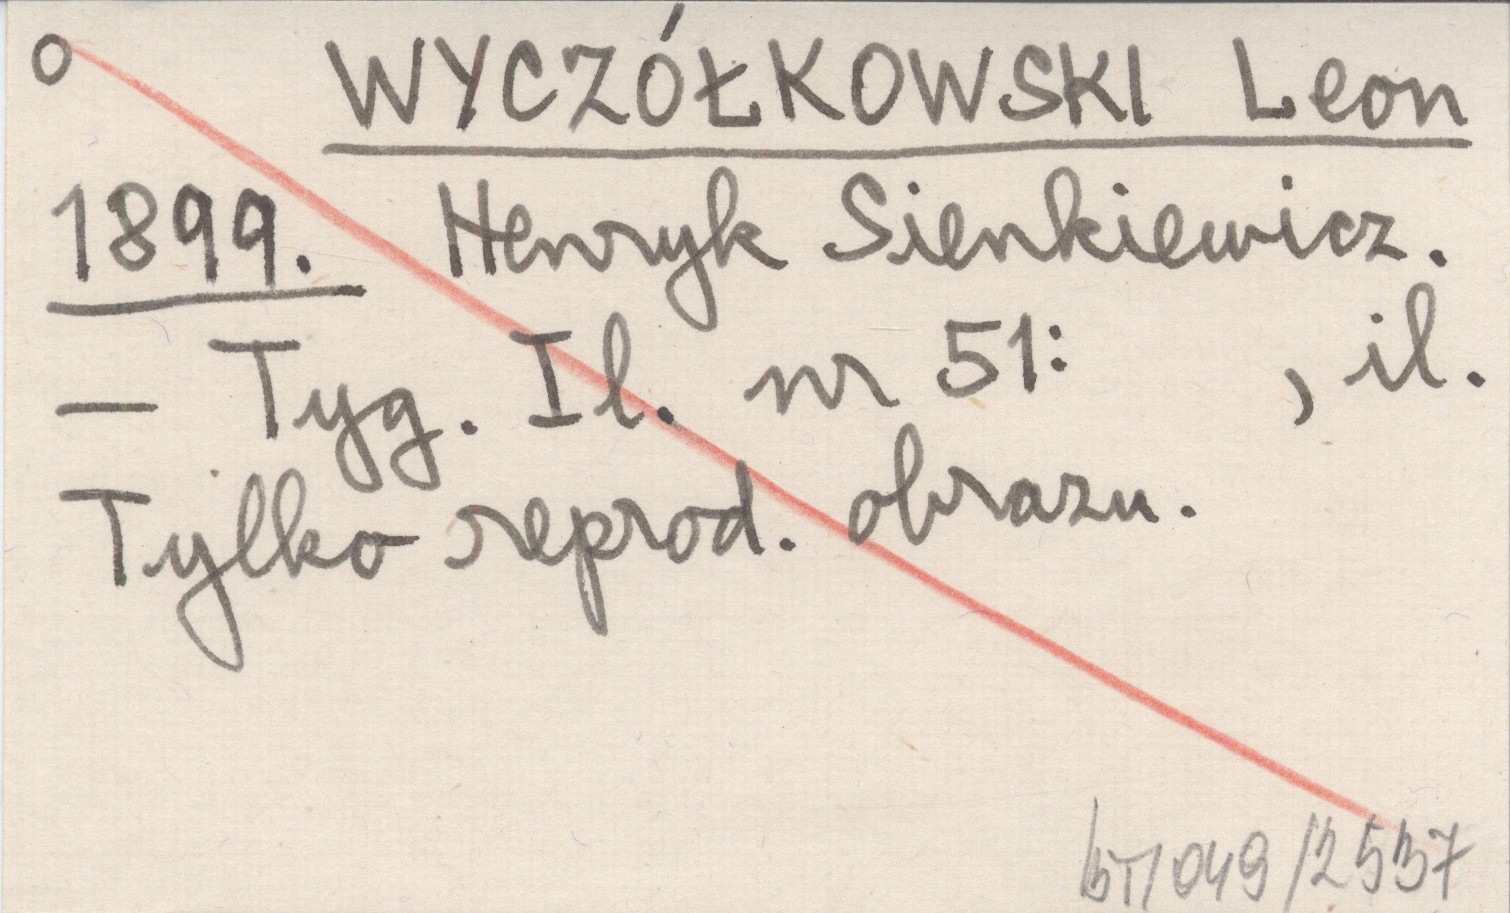 o WYCZÓŁKOWSKI Leon
1899. Henryk Sienkiewicz.
— Tyg. Il. nr 51: , il.
Tylko reprod. obrazu.
/2537